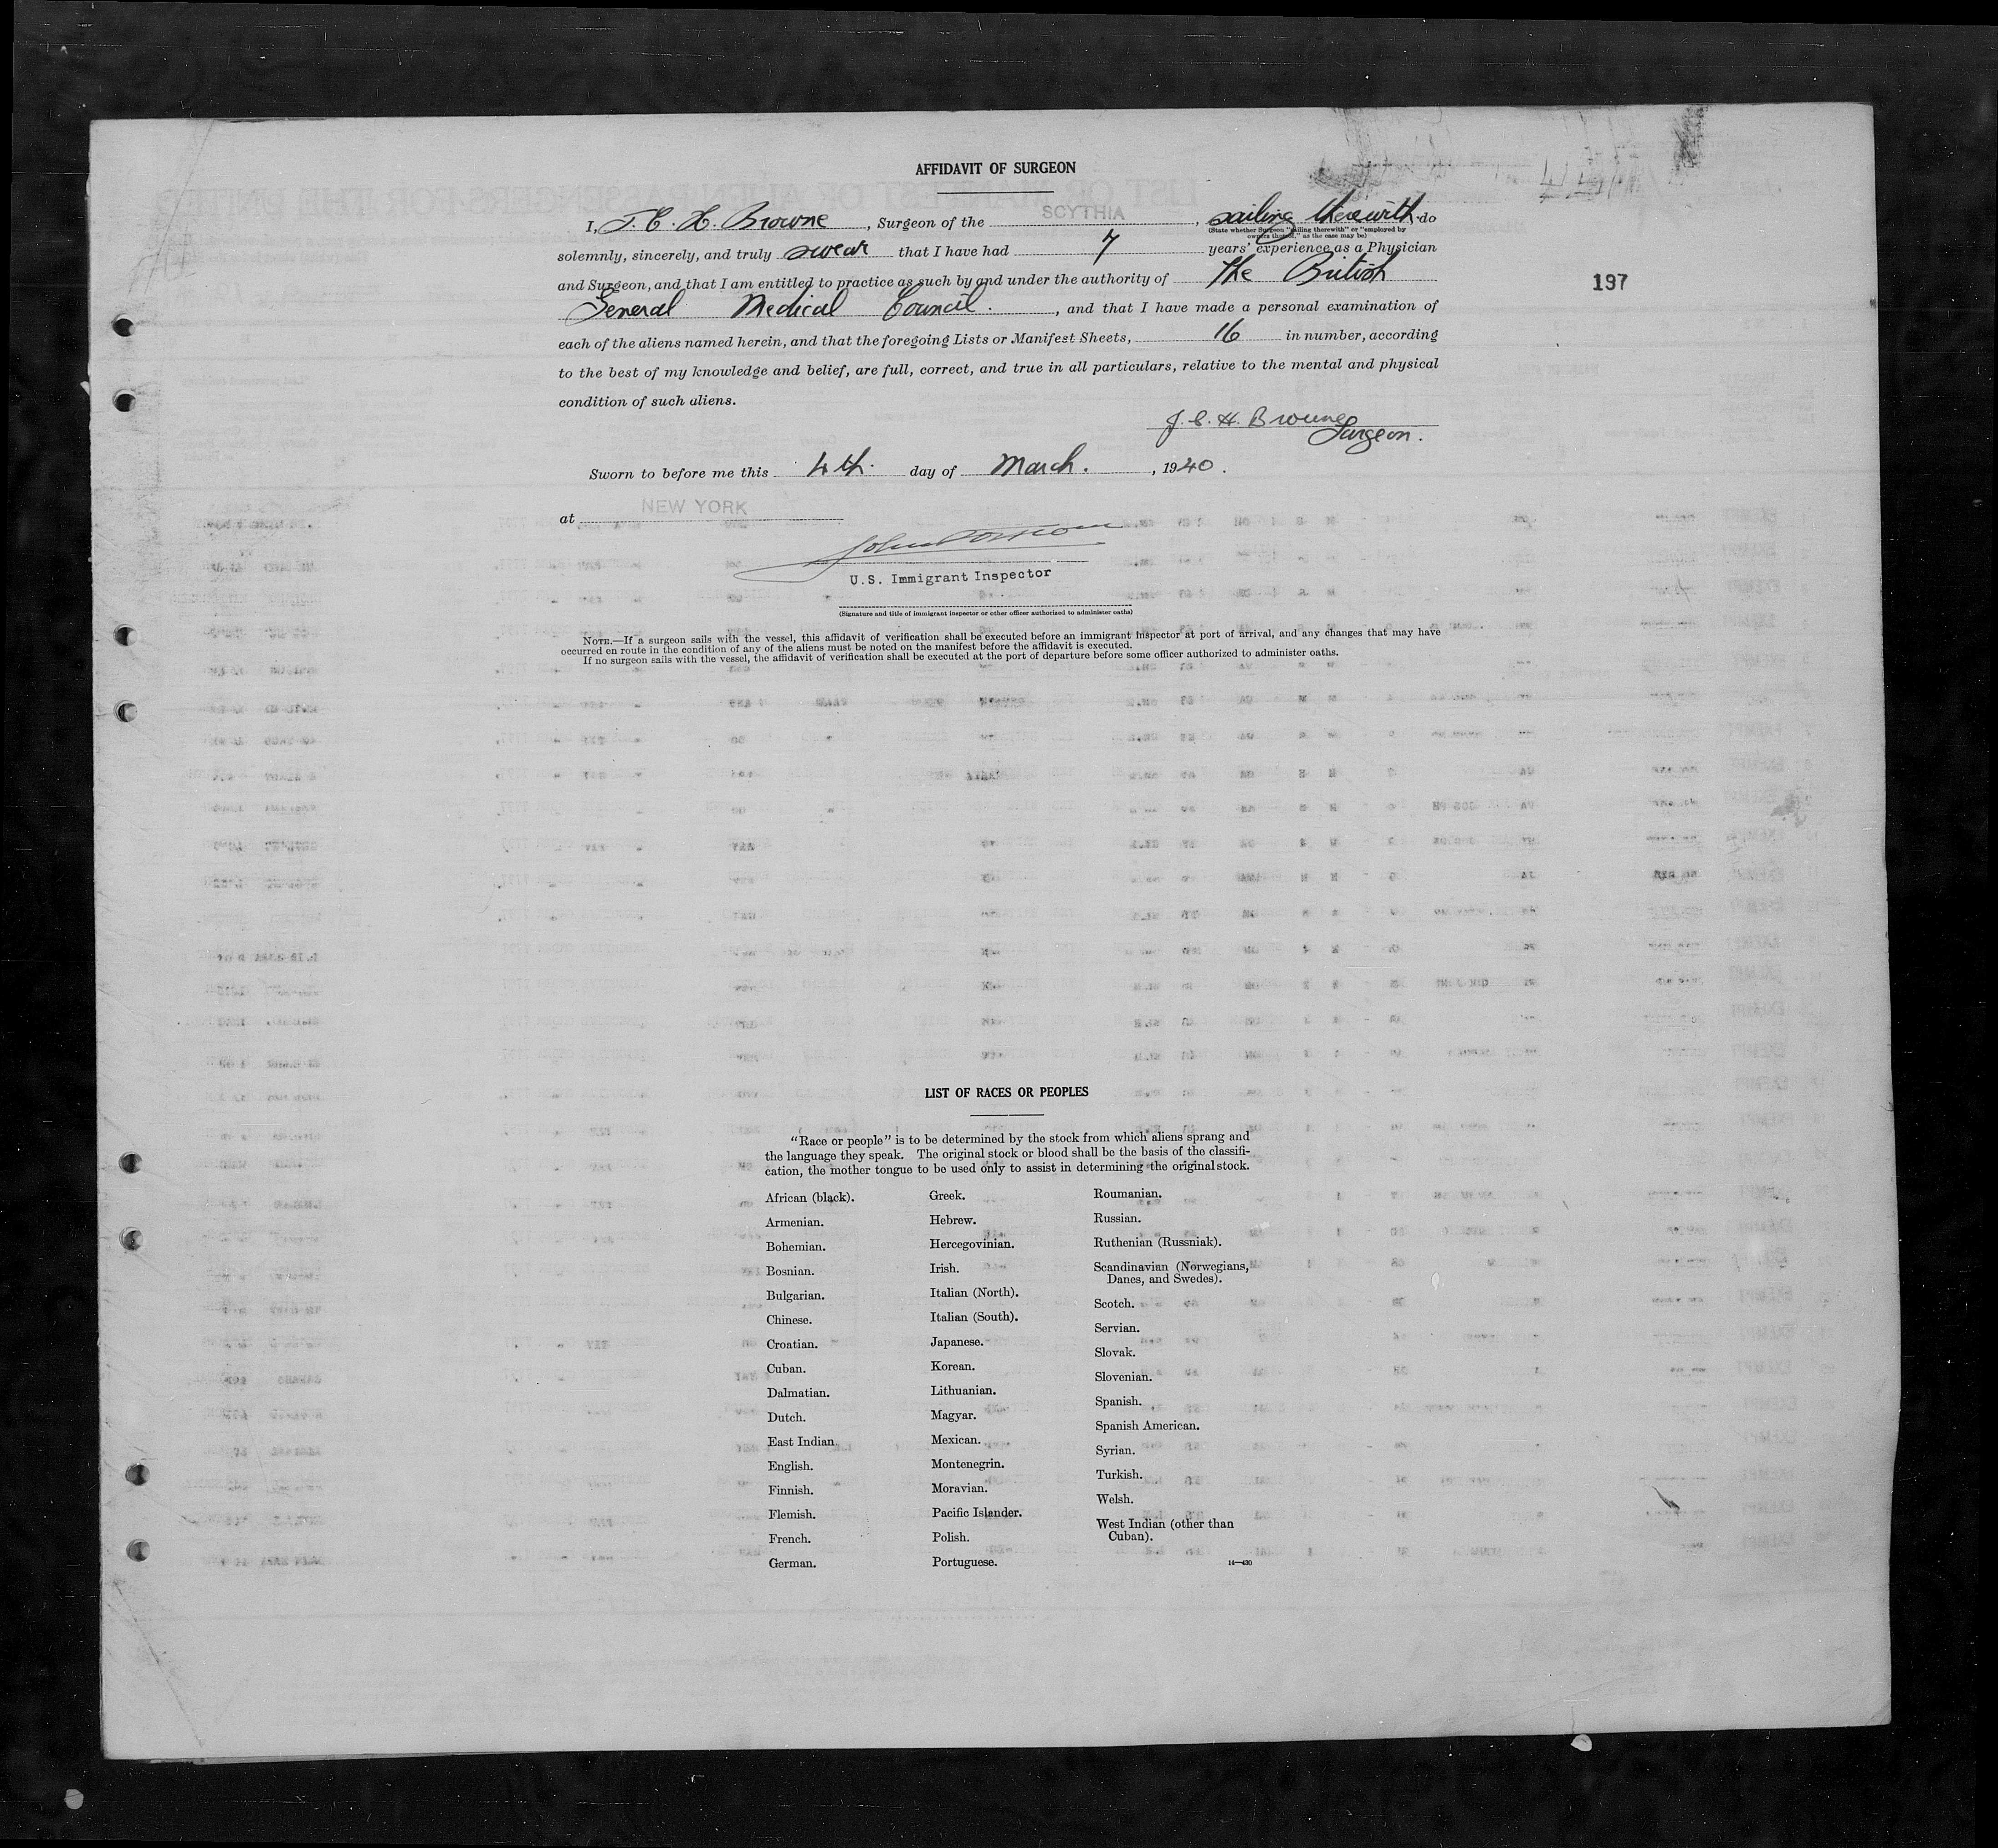 AFFIDAVIT OF SURGEON
I, J. C. H. Browne, Surgeon of the SCYTHIA, sailing therewith, do
(State whether Surgeon "sailing therewith" or "employed by
owners thereof," as the case may be)
solemnly, sincerely, and truly swear that I have had 7 years' experience as a Physician
and Surgeon, and that I am entitled to practice as such by and under the authority of The British
General Medical Council., and that I have made a personal examination of
each of the aliens named herein, and that the foregoing Lists or Manifest Sheets, 16 in number, according
to the best of my knowledge and belief, are full, correct, and true in all particulars, relative to the mental and physical
condition of such aliens.
J. C. H. Browne
Surgeon.
Sworn to before me this 4th. day of March., 1940.
at NEW YORK
U.S. Immigrant Inspector
(Signature and title of immigrant inspector or other officer authorized to administer oaths)
NOTE.—If a surgeon sails with the vessel, this affidavit of verification shall be executed before an immigrant inspector at port of arrival, and any changes that may have
occurred en route in the condition of any of the aliens must be noted on the manifest before the affidavit is executed.
If no surgeon sails with the vessel, the affidavit of verification shall be executed at the port of departure before some officer authorized to administer oaths.
197
LIST OF RACES OR PEOPLES
"Race or people" is to be determined by the stock from which aliens sprang and
the language they speak. The original stock or blood shall be the basis of the classifi-
cation, the mother tongue to be used only to assist in determining the original stock.
African (black).
Armenian.
Bohemian.
Bosnian.
Bulgarian.
Chinese.
Croatian.
Cuban.
Dalmatian.
Dutch.
East Indian
English.
Finnish.
Flemish.
French.
German.
Greek.
Hebrew.
Hercegovinian.
Irish.
Italian (North).
Italian (South).
Japanese.
Korean.
Lithuanian.
Magyar.
Mexican.
Montenegrin.
Moravian.
Pacific Islander.
Polish.
Portuguese.
Roumanian.
Russian.
Ruthenian (Russniak).
Scandinavian (Norwegians,
Danes, and Swedes).
Scotch.
Servian.
Slovak.
Slovenian.
Spanish.
Spanish American.
Syrian.
Turkish.
Welsh.
West Indian (other than
Cuban).
14—430